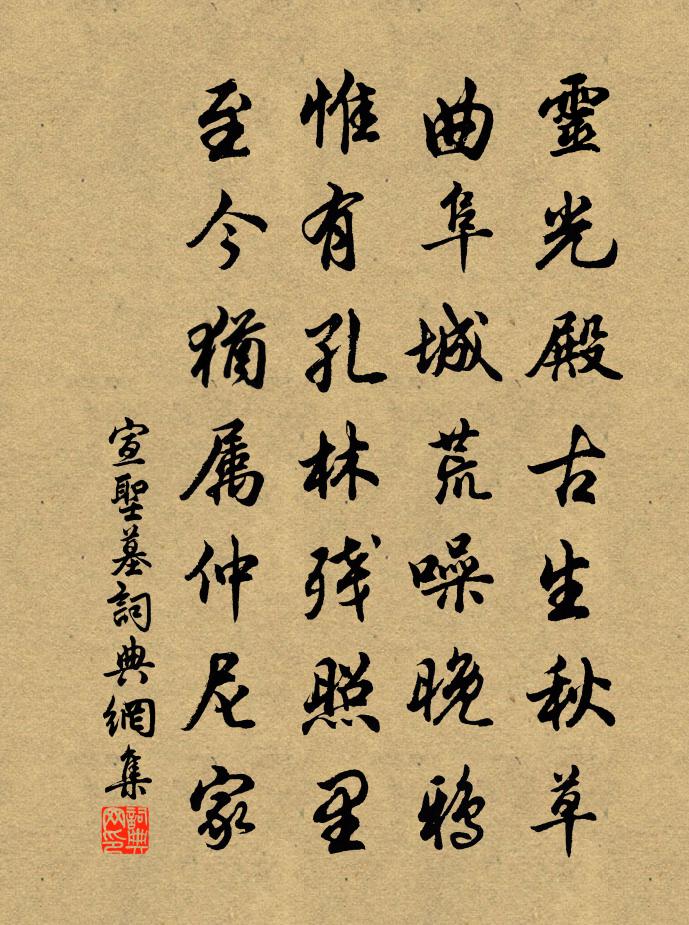 靈光殿古生秋草
曲阜城荒噪晚鸦
惟有孔林残照里
至今猶属仲尼家
宣聖墓詞典網集
詞典网印